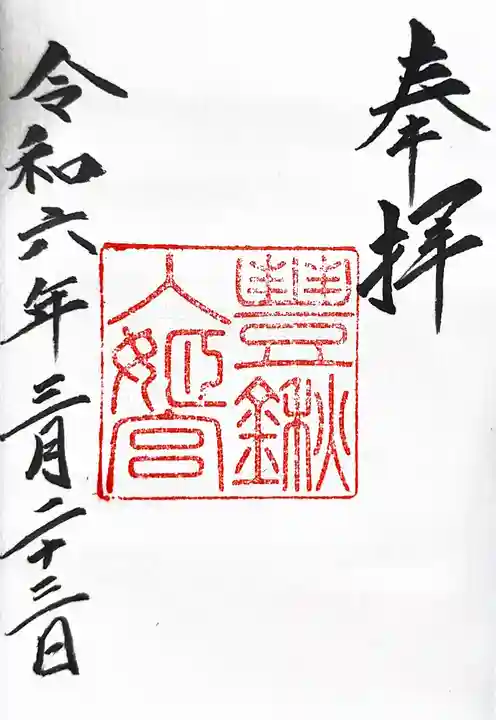 奉拝
豊鍬
入姫宮
令和六年三月二十三日